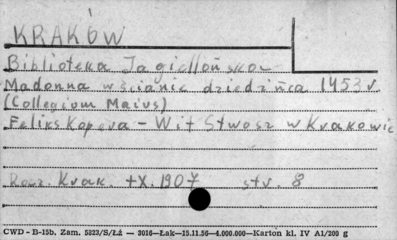 KRAKÓW
Biblioteka Jagiellońska
Madonna w ścianie dziedzińca 1453 r.
(Collegium Maius)
Feliks Kopera - Wit Stwosz w Krakowie
Rocz. Krak. t X. 1907 str. 8
CWD - B-15b. Zam. 5823/S/Łż — 3016—Łak—15.11.56—4.000.000—Karton kl. IV A1/200 g